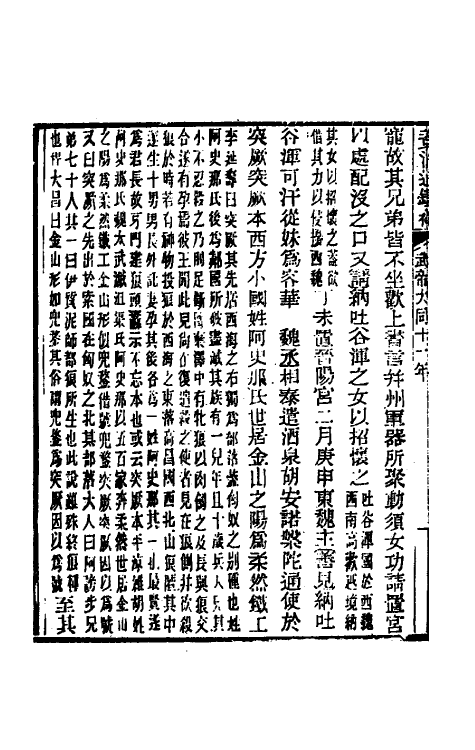 資治通鑑補 武帝大同十一年
寵故其兄弟皆不坐歡上書言幷州軍器所聚動須女功請置宮
以處配沒之口又請納吐谷渾之女以招懷之吐谷渾國於西魏西南高歡越境納
其女以招懷之蓋欲借其力以侵擾西魏丁未置晉陽宮二月庚申東魏主善見納吐
谷渾可汗從妹爲容華 魏丞相泰遣酒泉胡安諾槃陀通使於
突厥突厥本西方小國姓阿史那氏世居金山之陽爲柔然鐵工
李延壽曰突厥其先居西海之右獨爲部落蓋匈奴之別種也姓
阿史那氏後爲鄰國所破盡滅其族有一兒年且十歲兵人見其
小不忍殺之乃刖足斷臂棄澤中有牝狼以肉餇之及長與狼交
合遂有孕焉彼王聞此兒尚在復遣殺之使者見在狼側幷欲殺
狼於時若有神物投狼於西海之東落高昌國西北山狼匿其中
遂生十男男長外託妻孕其後各爲一姓阿史那其一也最賢遂
爲君長故牙門建狼頭纛示不忘本也或云突厥本平涼雜胡姓
阿史那氏魏太武滅沮渠氏阿史那以五百家奔柔然世居金山
之陽爲柔然鐵工金山形似兜鍪借號兜鍪突厥突厥因以爲號
又曰突厥之先出於索國在匈奴之北其部落大人曰阿謗步兄
弟七十人其一曰伊質泥師都狼所生也此說雖殊終狼種
也 昌曰金山形如兜鍪其俗謂兜鍪爲突厥因以爲號至其